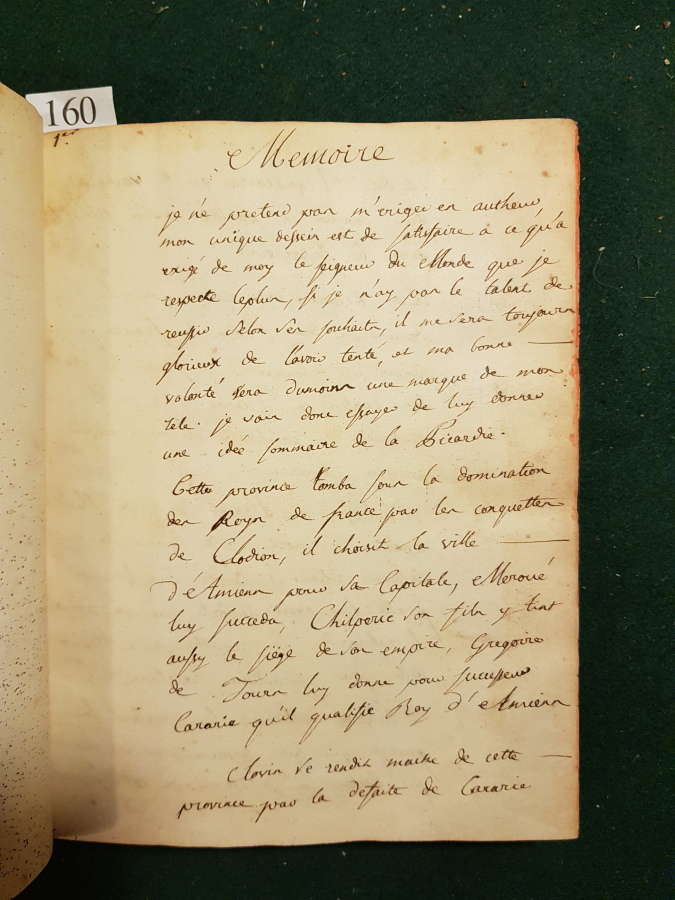 160
1er
Memoire
je ne pretend pas m'eriger en autheur,
mon unique dessein est de satisfaire à ce qu'a
exigé de moy le seigneur du Monde que je
respecte leplus, si je n'ay pas le talent de
reussir selon ses souhaits, il me sera toujours
glorieux de l'avoir tenté, et ma bonne
volonté sera dumoins une marque de mon
zele. je vais donc essayer de luy donner
une idée sommaire de la Picardie.
Cette province tomba sous la domination
des Roys de france par les conquettes
de Clodion, il choisit la ville
d'Amiens pour sa Capitale, Meroué
luy succeda, Chilperic son fils y tint
aussy le siége de son empire, Gregoire
de Tours luy donne pour successeur
Cararic qu'il qualifie Roy d'Amiens
Clovis se rendit maitre de cette
province par la defaite de Cararic